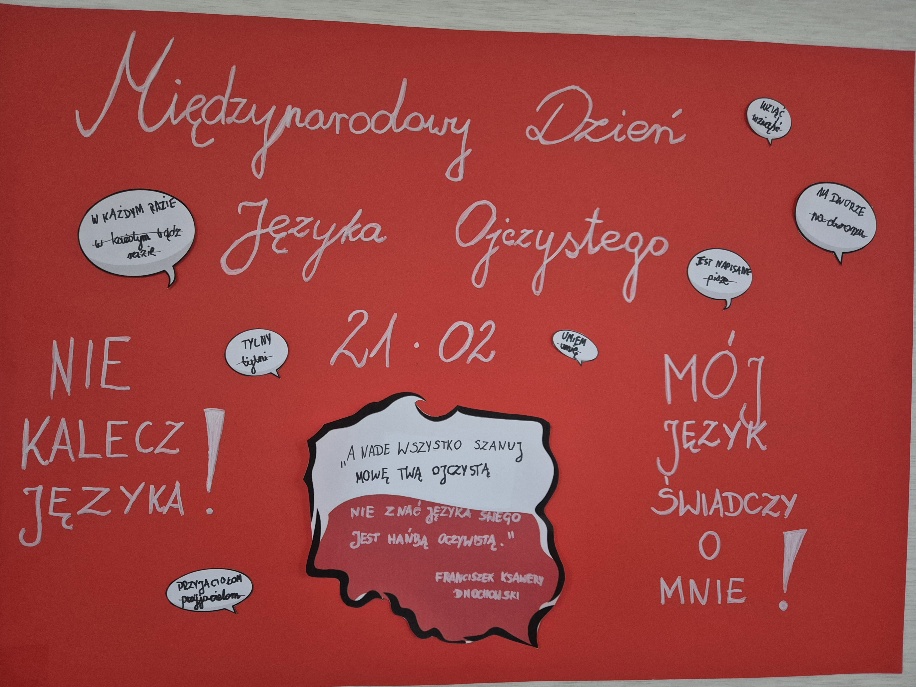 Międzynarodowy Dzień
Języka Ojczystego
21.02
WZIĄĆ
wziąść
W KAŻDYM RAZIE
w każdym bądź
razie
NA DWORZE
na dworzu
JEST NAPISANE
pisze
TYLNY
tylni
UMIEM
umię
NIE
KALECZ
JĘZYKA!
„A NADE WSZYSTKO SZANUJ
MOWĘ TWĄ OJCZYSTĄ
NIE ZNAĆ JĘZYKA SWEGO
JEST HAŃBĄ OCZYWISTĄ."
FRANCISZEK KSAWERY
DMOCHOWSKI
MÓJ
JĘZYK
ŚWIADCZY
O
MNIE!
PRZYJACIOŁOM
przyjacielom